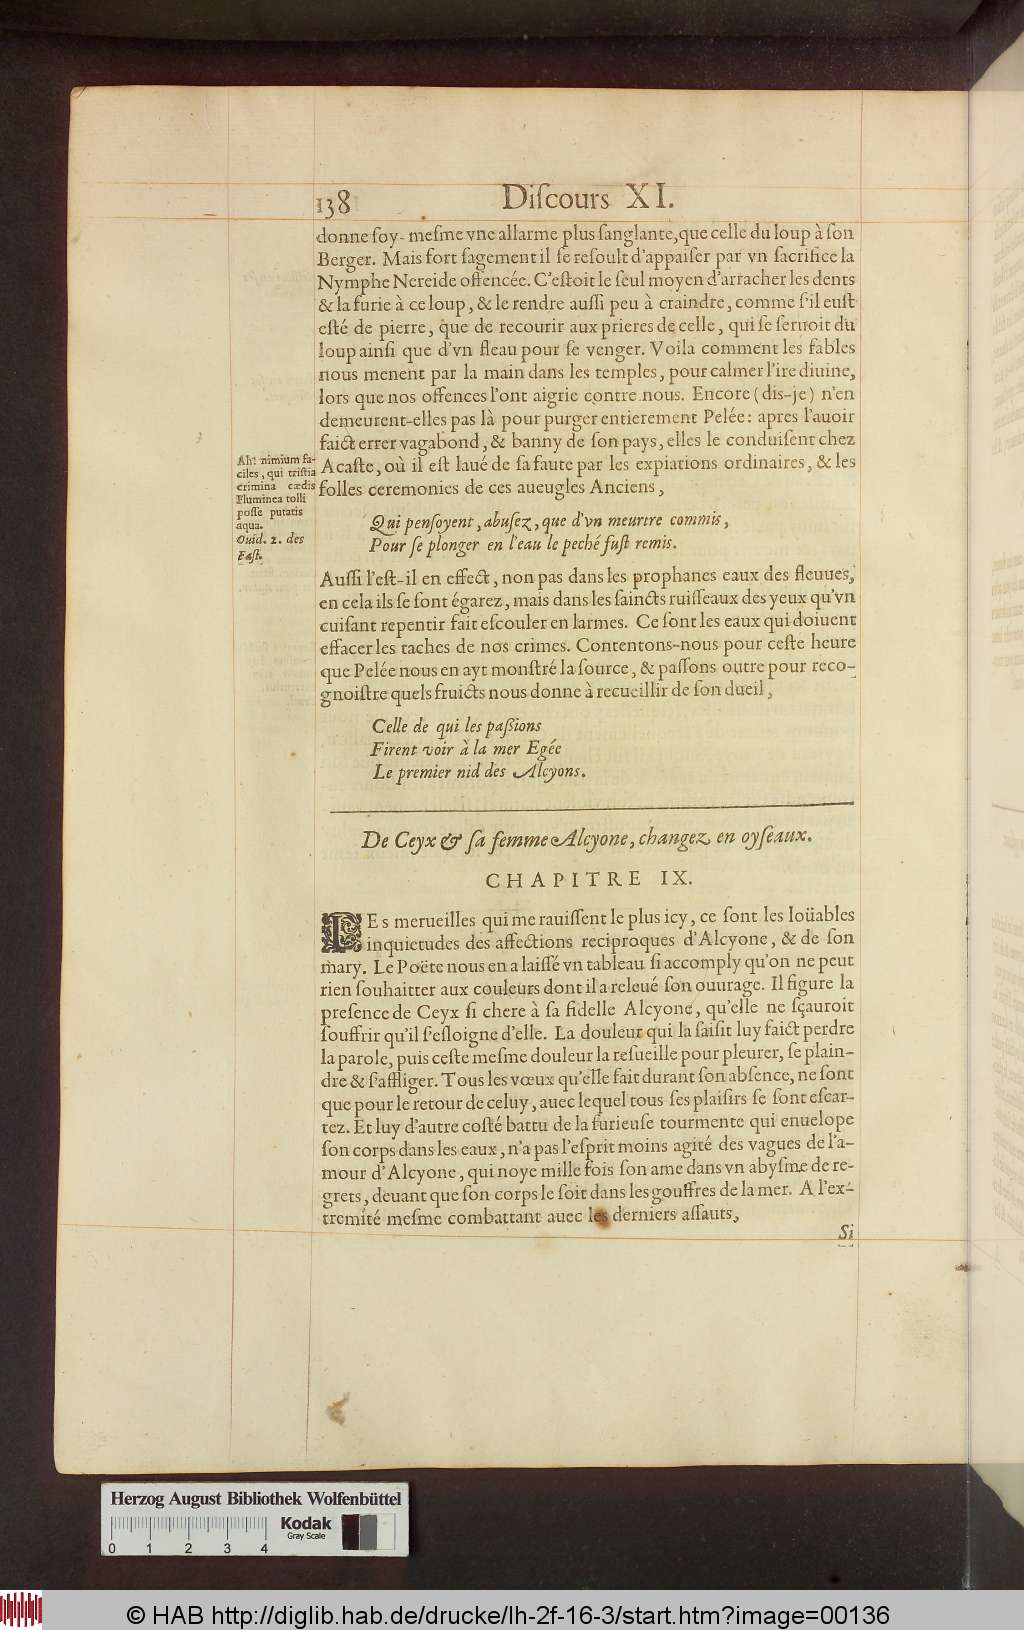 138 Diſcours XI.
donne ſoy-meſme vne allarme plus ſanglante, que celle du loup à ſon
Berger. Mais fort ſagement il ſe reſoult d'appaiſer par vn ſacrifice la
Nymphe Nereide offencée. C'eſtoit le ſeul moyen d'arracher les dents
& la furie à ce loup, & le rendre auſſi peu à craindre, comme ſ'il euſt
eſté de pierre, que de recourir aux prieres de celle, qui ſe ſeruoit du
loup ainſi que d'vn fleau pour ſe venger. Voila comment les fables
nous menent par la main dans les temples, pour calmer l'ire diuine,
lors que nos offences l'ont aigrie contre nous. Encore (dis-je) n'en
demeurent-elles pas là pour purger entierement Pelée: apres l'auoir
faict errer vagabond, & banny de ſon pays, elles le conduiſent chez
Acaſte, où il eſt laué de ſa faute par les expiations ordinaires, & les
folles ceremonies de ces aueugles Anciens,
Ah! nimium fa-
ciles, qui triſtia
crimina cædis
Fluminea tolli
poſſe putatis
aqua.
Ouid. 2. des
Faſt.
Qui penſoyent, abuſez, que d'vn meurtre commis,
Pour ſe plonger en l'eau le peché fuſt remis.
Auſſi l'eſt-il en effect, non pas dans les prophanes eaux des fleuues,
en cela ils ſe ſont égarez, mais dans les ſaincts ruiſſeaux des yeux qu'vn
cuiſant repentir fait eſcouler en larmes. Ce ſont les eaux qui doiuent
effacer les taches de nos crimes. Contentons-nous pour ceſte heure
que Pelée nous en ayt monſtré la ſource, & paſſons outre pour reco-
gnoiſtre quels fruicts nous donne à recueillir de ſon dueil,
Celle de qui les paßions
Firent voir à la mer Egée
Le premier nid des Alcyons.
De Ceyx & ſa femme Alcyone, changez en oyſeaux.
CHAPITRE IX.
LEs merueilles qui me rauiſſent le plus icy, ce ſont les loüables
inquietudes des affections reciproques d'Alcyone, & de ſon
mary. Le Poëte nous en a laiſſé vn tableau ſi accomply qu'on ne peut
rien ſouhaitter aux couleurs dont il a releué ſon ouurage. Il figure la
preſence de Ceyx ſi chere à ſa fidelle Alcyone, qu'elle ne ſçauroit
ſouffrir qu'il ſ'eſloigne d'elle. La douleur qui la ſaiſit luy faict perdre
la parole, puis ceſte meſme douleur la reſueille pour pleurer, ſe plain-
dre & ſ'affliger. Tous les vœux qu'elle fait durant ſon abſence, ne ſont
que pour le retour de celuy, auec lequel tous ſes plaiſirs ſe ſont eſcar-
tez. Et luy d'autre coſté battu de la furieuſe tourmente qui enuelope
ſon corps dans les eaux, n'a pas l'eſprit moins agité des vagues de l'a-
mour d'Alcyone, qui noye mille fois ſon ame dans vn abyſme de re-
grets, deuant que ſon corps le ſoit dans les gouffres de la mer. A l'ex-
tremité meſme combattant auec les derniers aſſauts,
Si
Herzog August Bibliothek Wolfenbüttel
Kodak
Gray Scale
0 1 2 3 4
© HAB http://diglib.hab.de/drucke/lh-2f-16-3/start.htm?image=00136